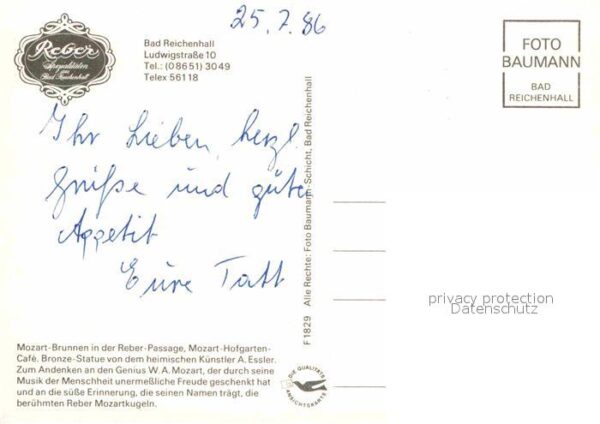 25.7.86
Reber
Spezialitäten
aus
Bad Reichenhall
Bad Reichenhall
Ludwigstraße 10
Tel.: (0 86 51) 30 49
Telex 56 118
FOTO
BAUMANN
BAD
REICHENHALL
Ihr Lieben, herzl.
Grüße und guten
Appetit
Eure Tatt
F 1829 Alle Rechte: Foto Baumann-Schicht, Bad Reichenhall
privacy protection
Datenschutz
Mozart-Brunnen in der Reber-Passage, Mozart-Hofgarten-
Café. Bronze-Statue von dem heimischen Künstler A. Essler.
Zum Andenken an den Genius W. A. Mozart, der durch seine
Musik der Menschheit unermeßliche Freude geschenkt hat
und an die süße Erinnerung, die seinen Namen trägt, die
berühmten Reber Mozartkugeln.
DIE QUALITÄTS
ANSICHTSKARTE